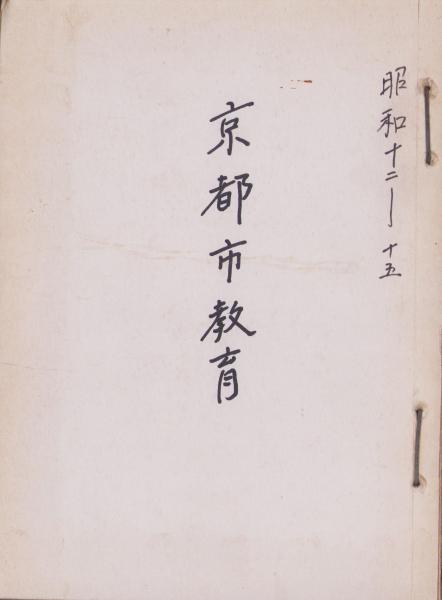 昭和十二ー十五
京都市教育